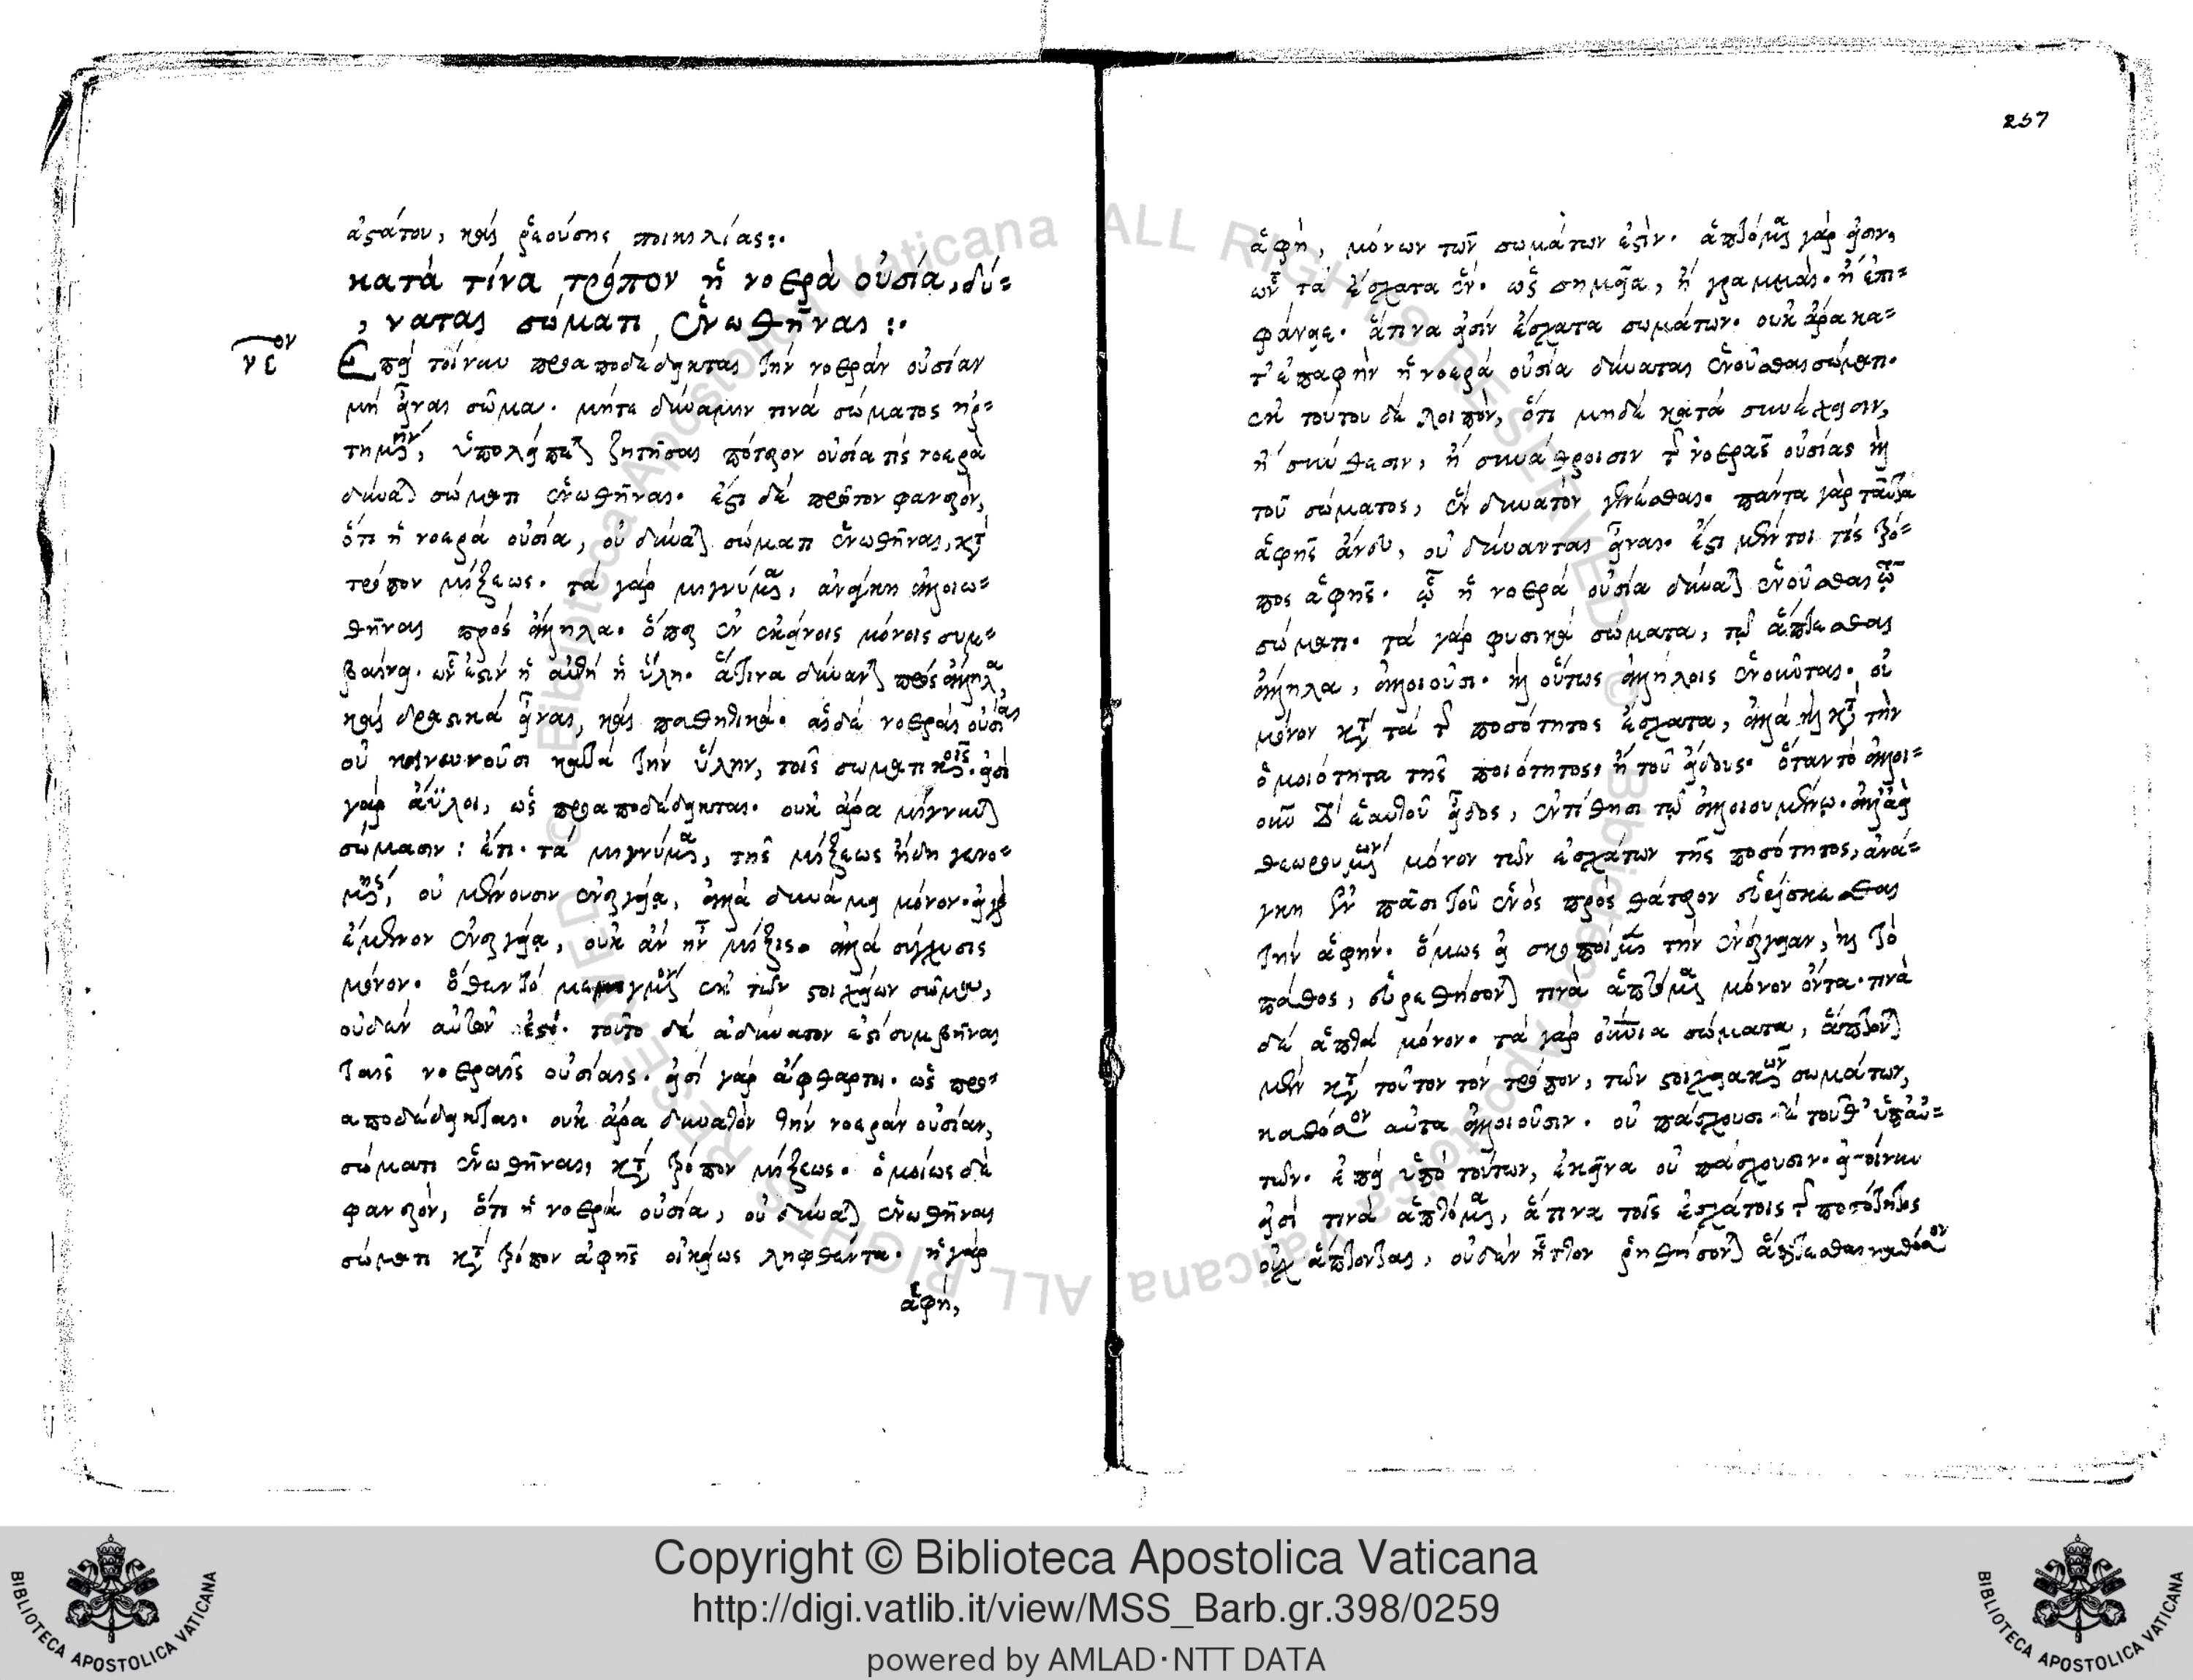 ἀστάτου, καὶ ῥεούσης ποικιλίας:·
κατὰ τίνα τρόπον ἡ νοερὰ οὐσία, δύ=
νατας σώματι ἑνωθῆναι:·
νε ον
Ἐπεὶ τοίνυν προαποδέδεικται τὴν νοερὰν οὐσίαν
μὴ εἶναι σῶμα· μήτε δύναμιν τινὰ σώματος ἠρ=
τημένην, ὑπολείπεται ζητῆσαι πότερον οὐσία τίς νοερὰ
δύναται σώματι ἑνωθῆναι· ἔστι δὲ πρῶτον φανερὸν,
ὅτι ἡ νοερὰ οὐσία, οὐ δύναται σώματι ἑνωθῆναι, κατὰ
τρόπον μίξεως· τὰ γὰρ μιγνύμενα, ἀνάγκη ἀλλοιω=
θῆναι πρὸς ἄλληλα· ὅπερ ἐν ἐκείνοις μόνοις συμ=
βαίνει· ὧν ἐστὶν ἡ αὐτὴ ἡ ὕλη· ἅτινα δύναται πρὸς ἄλληλα,
καὶ δραστικὰ εἶναι, καὶ παθητικά· αἱ δὲ νοεραὶ οὐσίαι
οὐ κοινωνοῦσι κατὰ τὴν ὕλην, τοῖς σωματικοῖς· εἰσὶ
γὰρ ἄϋλοι, ὡς προαποδέδεικται· οὐκ ἄρα μίγνυται
σώμασιν: ἔτι· τὰ μιγνύμενα, τῆς μίξεως ἤδη γενο=
μένης, οὐ μένουσιν ἐνεργείᾳ, ἀλλὰ δυνάμει μόνον· εἰ γὰρ
ἔμενον ἐνεργείᾳ, οὐκ ἂν ἦν μίξις· ἀλλὰ σύγχυσις
μόνον· ὅθεν τὸ μεμιγμένον ἐκ τῶν στοιχείων σῶμα,
οὐδὲν αὐτῶν ἐστί· τοῦτο δὲ ἀδύνατον ἐστὶ συμβῆναι
ταῖς νοεραῖς οὐσίαις· εἰσὶ γὰρ ἄφθαρτοι· ὡς προ=
αποδέδεικται· οὐκ ἄρα δυνατὸν τὴν νοερὰν οὐσίαν,
σώματι ἑνωθῆναι, κατὰ τρόπον μίξεως· ὁμοίως δὲ
φανερὸν, ὅτι ἡ νοερὰ οὐσία, οὐ δύναται ἑνωθῆναι
σώματι κατὰ τρόπον ἁφῆς οἰκείως ληφθέντα· ἡ γὰρ
ἁφὴ,
257
ἁφὴ, μόνων τῶν σωμάτων ἐστίν· ἁπτόμενα γὰρ εἰσιν,
ὧν τὰ ἔσχατα ἕν· ὡς σημεῖα, ἢ γραμμαὶ· ἢ ἐπι=
φάνειαι· ἅτινα εἰσὶν ἔσχατα σωμάτων· οὐκ ἄρα κα=
τ' ἐπαφὴν ἡ νοερὰ οὐσία δύναται ἑνοῦσθαι σώματι·
ἐκ τούτου δὲ λοιπὸν, ὅτι μηδὲ κατὰ συνέχειαν,
ἢ σύνθεσιν, ἢ συνάθροισιν τῆς νοερᾶς οὐσίας καὶ
τοῦ σώματος, ἓν δυνατὸν γενέσθαι· πάντα γὰρ ταῦτα
ἁφῆς ἄνευ, οὐ δύνανται εἶναι· ἔστι μέντοι τίς τρό=
πος ἁφῆς· ᾧ ἡ νοερὰ οὐσία δύναται ἑνοῦσθαι τῷ
σώματι· τὰ γὰρ φυσικὰ σώματα, τῷ ἅπτεσθαι
ἄλληλα, ἀλλοιοῦσι· καὶ οὕτως ἀλλήλοις ἑνοῦνται· οὐ
μόνον κατὰ τὰ τῆς ποσότητος ἔσχατα, ἀλλὰ καὶ κατὰ τὴν
ὁμοιότητα τῆς ποιότητος, ἢ τοῦ εἴδους· ὅταν τὸ ἀλλοι=
οῦν τὸ ἑαυτοῦ εἶδος, ἐντίθησι τῷ ἀλλοιουμένῳ· ἀλλ' εἰ
θεωρουμένων μόνον τῶν ἐσχάτων τῆς ποσότητος, ἀνά=
γκη ἐν πᾶσι τοῦ ἑνὸς πρὸς θάτερον εὑρίσκεσθαι
τὴν ἁφήν· ὅμως εἰ σκοποῖμεν τὴν ἐνέργειαν, καὶ τὸ
πάθος, εὑρεθήσονται τινὰ ἁπτόμενα μόνον ὄντα· τινὰ
δὲ ἁπτὰ μόνον· τὰ γὰρ οὐράνια σώματα, ἅπτονται
μὲν κατὰ τοῦτον τὸν τρόπον, τῶν στοιχειακῶν σωμάτων,
καθόσον αὐτὰ ἀλλοιοῦσιν· οὐ πάσχουσι δὲ τοῦθ' ὑπ' αὐ=
τῶν· ἐπεὶ ὑπὸ τούτων, ἐκεῖνα οὐ πάσχουσιν· εἰ τοίνυν
εἰσὶ τινὰ ἁπτόμενα, ἅτινα τοῖς ἐσχάτοις τῆς ποσότητος
οὐχ ἅπτονται, οὐδὲν ἧττον ῥηθήσονται ἅπτεσθαι καθόσον
Copyright © Biblioteca Apostolica Vaticana
http://digi.vatlib.it/view/MSS_Barb.gr.398/0259
powered by AMLAD·NTT DATA
BIBLIOTECA APOSTOLICA VATICANA
BIBLIOTECA APOSTOLICA VATICANA